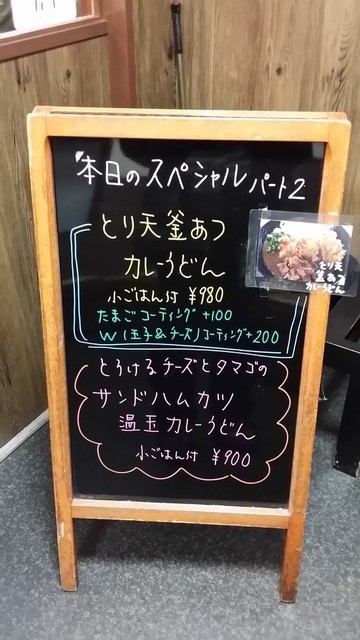 本日のスペシャルパート2
とり天釜あつ
カレーうどん
小ごはん付 ¥980
たまごコーティング+100
W(玉子&チーズ)コーティング+200
とろけるチーズとタマゴの
サンドハムカツ
温玉カレーうどん
小ごはん付 ¥900
とり天
釜あつ
カレーうどん